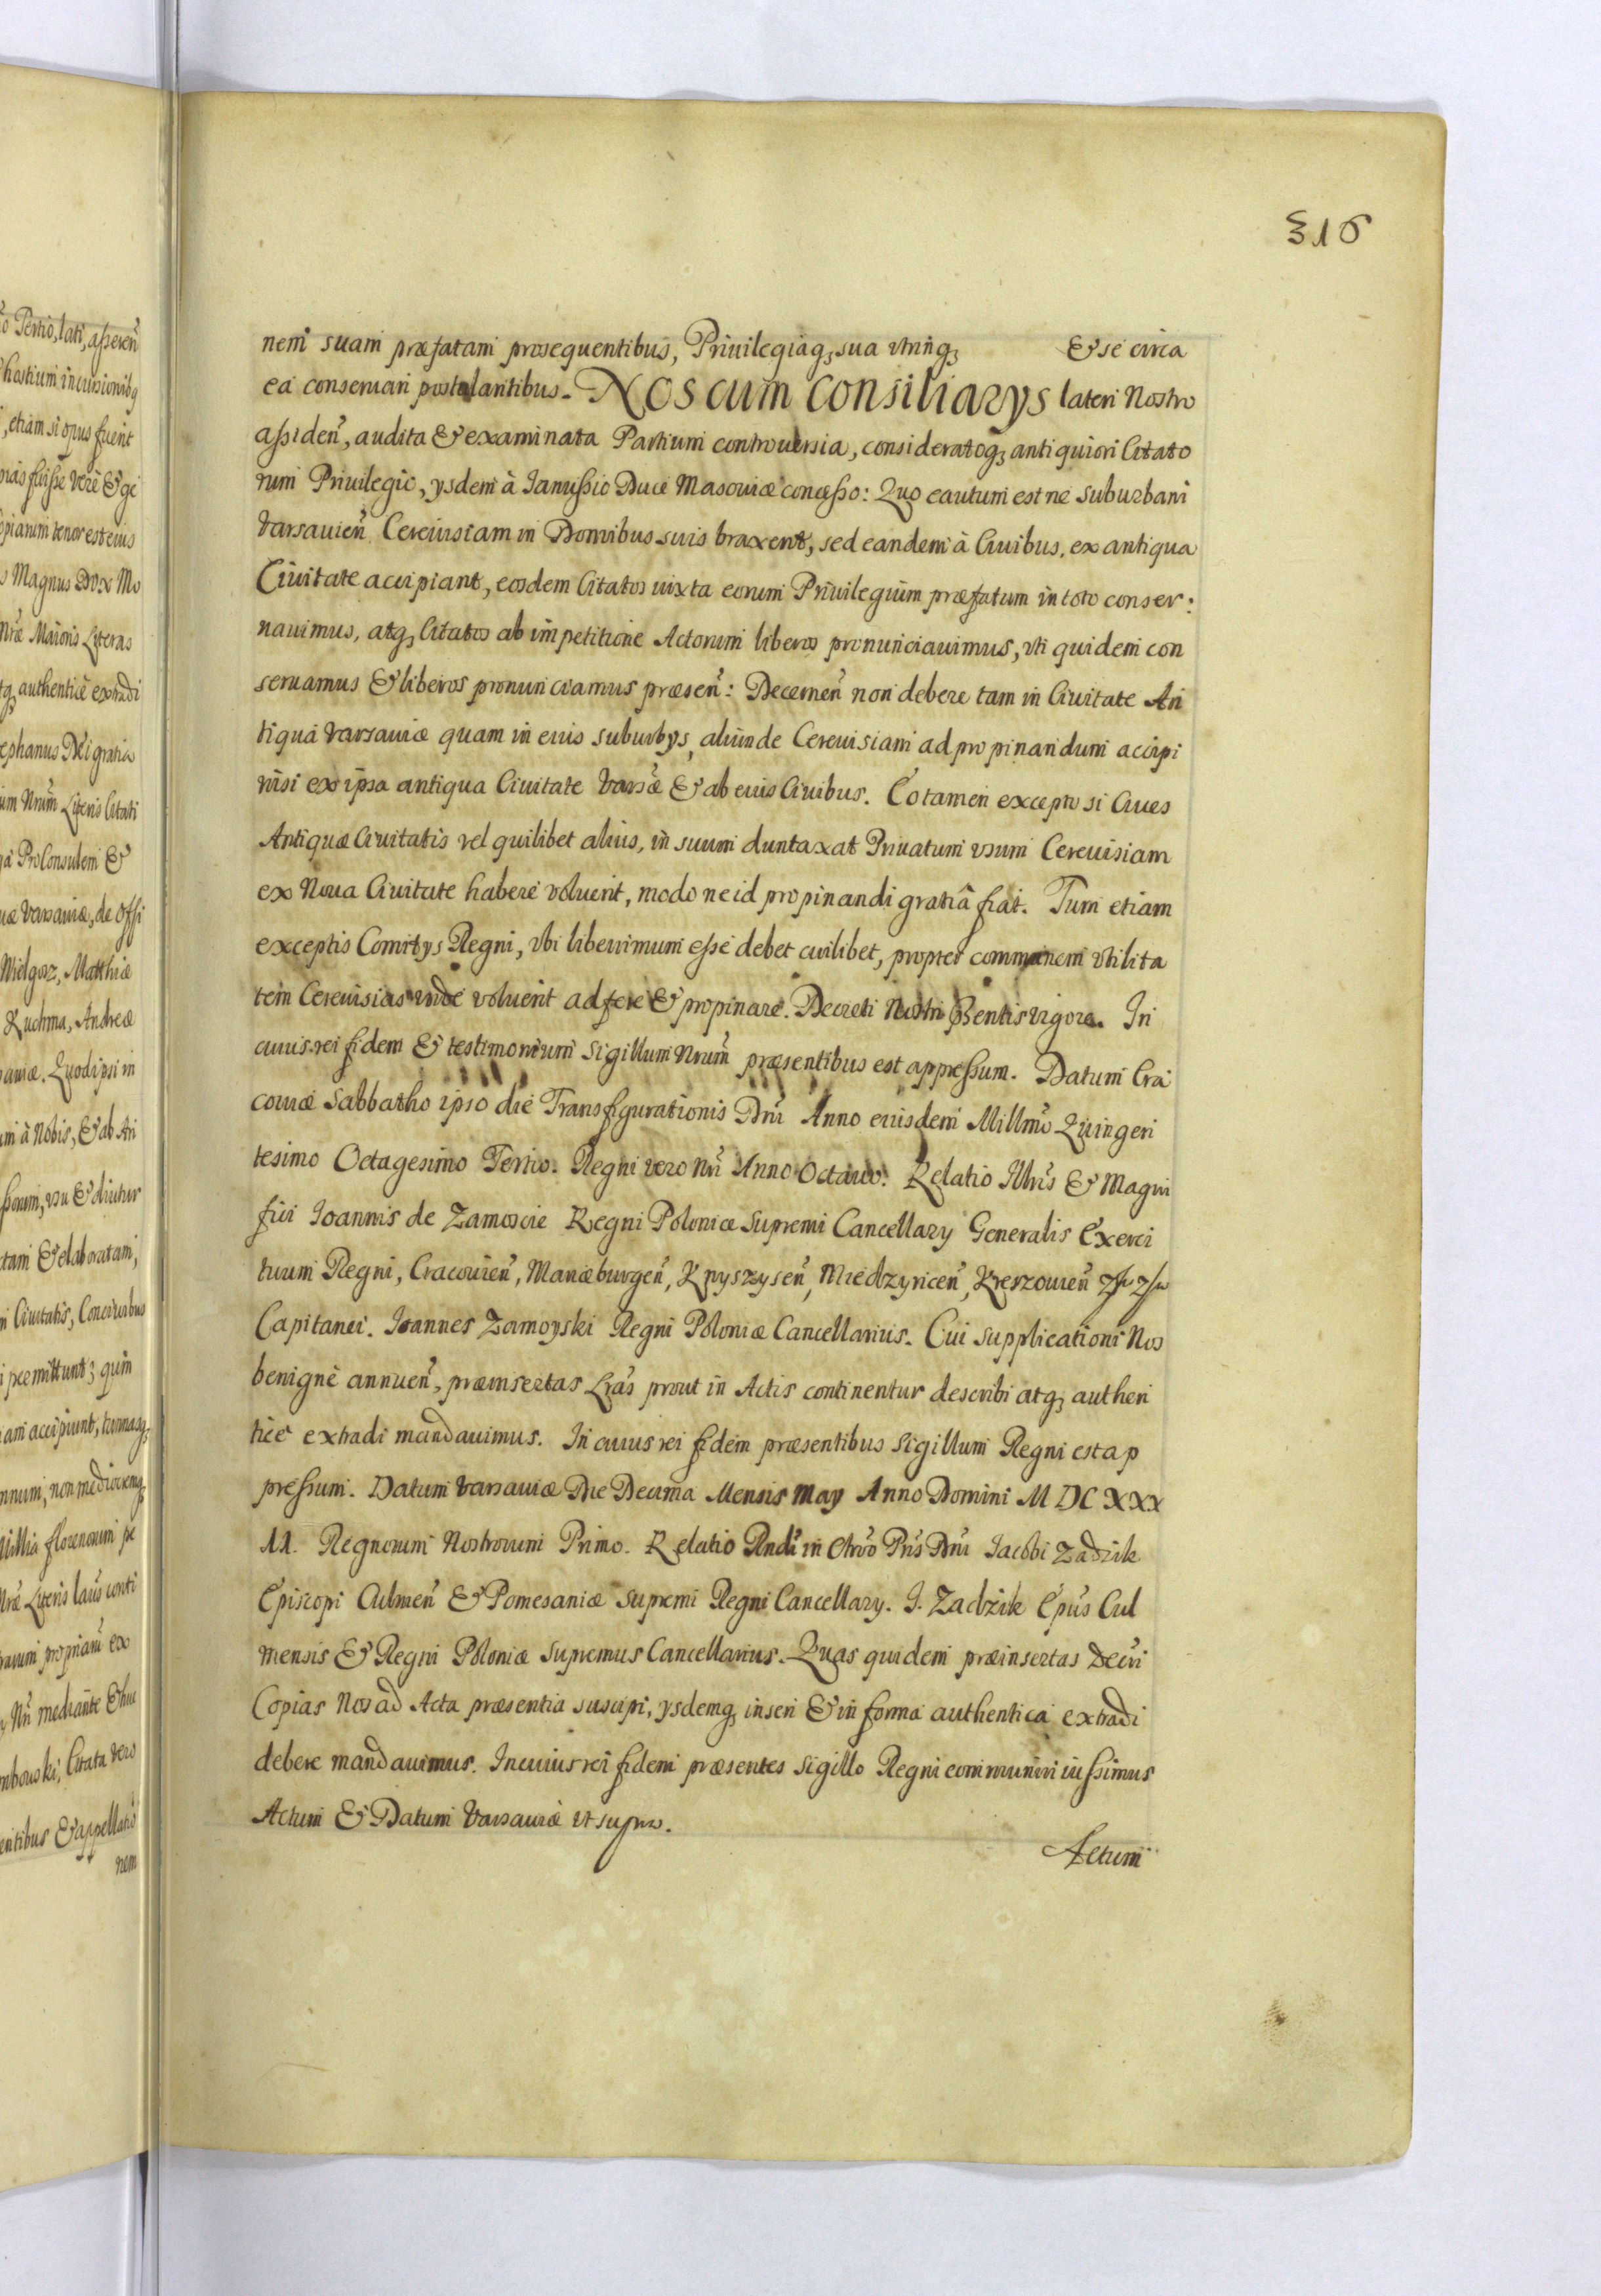 316
nem suam præfatam prosequentibus, Priuilegiaq₃ sua vtrinq₃ & se circa
ea conseruari postulantibus. Nos cum Consiliarys lateri Nostro
aßiden̄, audita & examinata Partium controuersia, consideratoq₃ antiquiori Citato
rum Priuilegio, ysdem à Janußio Duce Masouiæ conceßo: Quo cautum est ne suburbani
Varsauien̄ Cereuisiam in Domibus suis braxent, sed eandem à Ciuibus, ex antiqua
Ciuitate accipiant, eosdem Citatos iuxta eorum Priuilegium præfatum in toto conser:
uauimus, atq₃ Citatos ab impetitione Actorum liberos pronunciauimus, vti quidem con
seruamus & liberos pronunciamus præsen̄: Decernen̄ non debere tam in Ciuitate An
tiqua Varsauiæ quam in eius suburbys, aliunde Cereuisiam ad propinandum accipi
nisi ex ipsa antiqua Ciuitate Varsǣ & ab eius Ciuibus. Eo tamen excepto si Ciues
Antiquæ Ciuitatis vel quilibet alius, in suum duntaxat Priuatum vsum Cereuisiam
ex Noua Ciuitate habere voluerit, modo ne id propinandi gratiâ fiat. Tum etiam
exceptis Comitys Regni, vbi liberrimum eße debet cuilibet, propter communem vtilita
tem Cereuisias vnde voluerit adfere & propinare. Decreti Nostri p̄sentis vigore. In
cuius rei fidem & testimonium Sigillum Nrum̄ præsentibus est appreßum. Datum Cra
couiæ Sabbatho ipso die Transfigurationis Dn̄i Anno eiusdem Millmō Quingen
tesimo Octagesimo Tertio. Regni vero Nr̄i Anno Octauo. Relatio Illris̄ & Magni
fici Joannis de Zamoscie Regni Poloniæ Supremi Cancellary Generalis Exerci
tuum Regni, Cracouien̄, Mariæburgen̄, Knyszysen̄, Miedzyricen̄, Krerzouien̄
Capitanei. Joannes Zamoyski Regni Poloniæ Cancellarius. Cui supplicationi Nos
benignè annuen̄, præinsertas Lr̄as prout in Actis continentur describi atq₃ authen
ticè extradi mandauimus. In cuius rei fidem præsentibus Sigillum Regni est ap
preßum. Datum Varsauiæ Die Decima Mensis May Anno Domini M DC XXX
11. Regnorum Nostrorum Primo. Relatio Rndi in Chrō Pris̄ Dn̄i Jacobi Zadzik
Episcopi Culmen̄ & Pomesaniæ Supremi Regni Cancellary. J. Zadzik Epus̄ Cul
mensis & Regni Poloniæ Supremus Cancellarius. Quas quidem præinsertas
Copias Nos ad Acta præsentia suscipi, ysdemq₃ inseri & in forma authentica extradi
debere mandauimus. In cuius rei fidem præsentes Sigillo Regni communiri iußimus
Actum & Datum Varsauiæ vt supra.
Actum